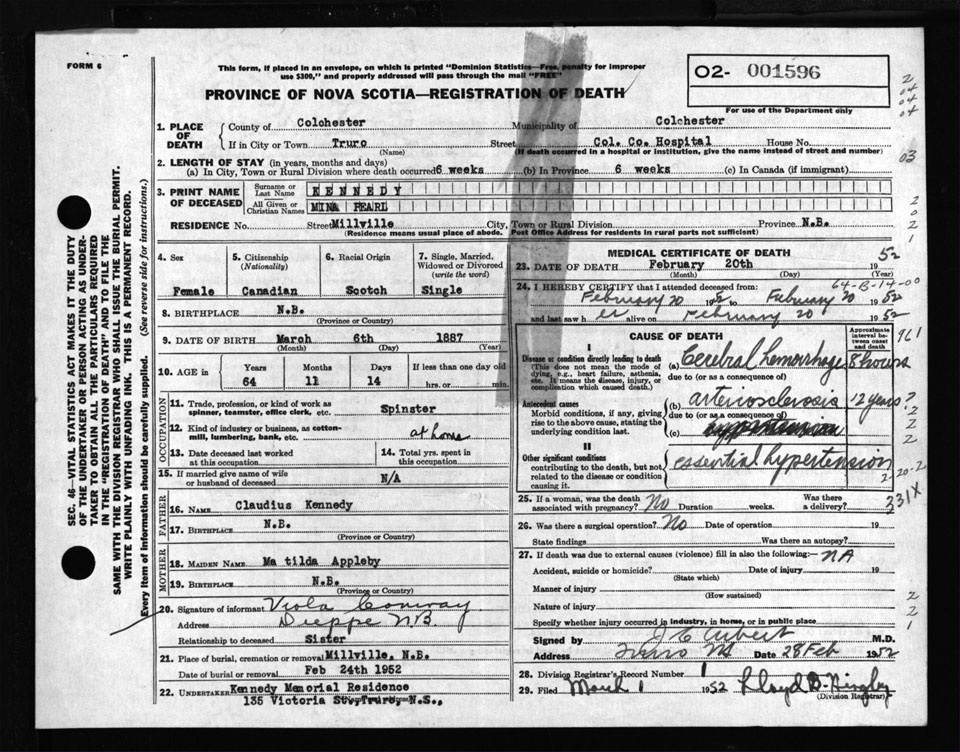 FORM 6
This form, if placed in an envelope, on which is printed "Dominion Statistics—Free, penalty for improper
use $300," and properly addressed will pass through the mail "FREE"
PROVINCE OF NOVA SCOTIA—REGISTRATION OF DEATH
02- 001596
For use of the Department only
2
04
04
03
2
0
2
1
SEC. 46—VITAL STATISTICS ACT MAKES IT THE DUTY
OF THE UNDERTAKER OR PERSON ACTING AS UNDER-
TAKER TO OBTAIN ALL THE PARTICULARS REQUIRED
IN THE "REGISTRATION OF DEATH" AND TO FILE THE
SAME WITH THE DIVISION REGISTRAR WHO SHALL ISSUE THE BURIAL PERMIT.
WRITE PLAINLY WITH UNFADING INK. THIS IS A PERMANENT RECORD.
Every item of information should be carefully supplied. (See reverse side for instructions.)
1. PLACE OF DEATH
County of Colchester Municipality of Colchester
If in City or Town Truro Street Col. Co. Hospital House No.
(Name) (If death occurred in a hospital or institution, give the name instead of street and number)
2. LENGTH OF STAY (in years, months and days)
(a) In City, Town or Rural Division where death occurred 6 weeks (b) In Province 6 weeks (c) In Canada (if immigrant)
3. PRINT NAME OF DECEASED
Surname or Last Name KENNEDY
All Given or Christian Names MINA PEARL
RESIDENCE No. Street Millville City, Town or Rural Division Province N.B.
(Residence means usual place of abode. Post Office Address for residents in rural parts not sufficient)
4. Sex 5. Citizenship (Nationality) 6. Racial Origin 7. Single, Married, Widowed or Divorced (write the word)
Female Canadian Scotch Single
8. BIRTHPLACE N.B.
(Province or Country)
9. DATE OF BIRTH March 6th 1887
(Month) (Day) (Year)
10. AGE in Years Months Days If less than one day old
64 11 14 hrs. or min.
OCCUPATION
11. Trade, profession, or kind of work as
spinner, teamster, office clerk, etc. Spinster
12. Kind of industry or business, as cotton-
mill, lumbering, bank, etc. at home
13. Date deceased last worked
at this occupation
14. Total yrs. spent in
this occupation
15. If married give name of wife
or husband of deceased N/A
FATHER
16. NAME Claudius Kennedy
17. BIRTHPLACE N.B.
(Province or Country)
MOTHER
18. MAIDEN NAME Ma tilda Appleby
19. BIRTHPLACE N.B.
(Province or Country)
20. Signature of informant Viola Conway
Address Dieppe N.B.
Relationship to deceased Sister
21. Place of burial, cremation or removal Millville, N.B.
Date of burial or removal Feb 24th 1952
22. UNDERTAKER Kennedy Memorial Residence
135 Victoria St., Truro, N.S.,
MEDICAL CERTIFICATE OF DEATH
23. DATE OF DEATH February 20th 1952
(Month) (Day) (Year)
64-B-14-00
24. I HEREBY CERTIFY that I attended deceased from:
February 20 1952 to February 20 1952
and last saw her alive on February 20 1952
CAUSE OF DEATH
Approximate interval between onset and death
961
I
Disease or condition directly leading to death
(This does not mean the mode of
dying, e.g., heart failure, asthenia,
etc. It means the disease, injury, or
complication which caused death.)
(a) Cerebral hemorrhage 8 hours
due to (or as a consequence of)
Antecedent causes
Morbid conditions, if any, giving
rise to the above cause, stating the
underlying condition last.
(b) arteriosclerosis 12 years ?
due to (or as a consequence of)
(c) hypertension
2
2
II
Other significant conditions
contributing to the death, but not
related to the disease or condition
causing it.
essential hypertension
2-20-2
2
331X
25. If a woman, was the death
associated with pregnancy? No Duration weeks. Was there
a delivery?
26. Was there a surgical operation? No Date of operation 19
State findings Was there an autopsy?
27. If death was due to external causes (violence) fill in also the following:— NA
Accident, suicide or homicide? Date of injury 19
(State which)
Manner of injury
(How sustained)
Nature of injury
2
2
1
Specify whether injury occurred in industry, in home, or in public place
Signed by M.D.
Address Truro NS Date 28 Feb 1952
28. Division Registrar's Record Number 1
29. Filed March 1 1952 Lloyd B.
(Division Registrar)